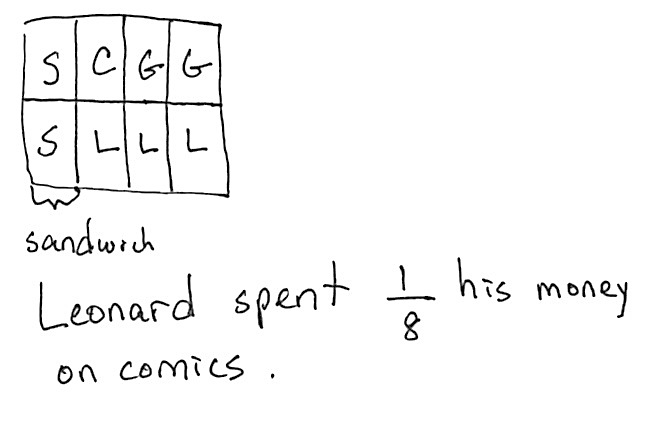 S C G G
S L L L
sandwich
Leonard spent 1/8 his money
on comics.